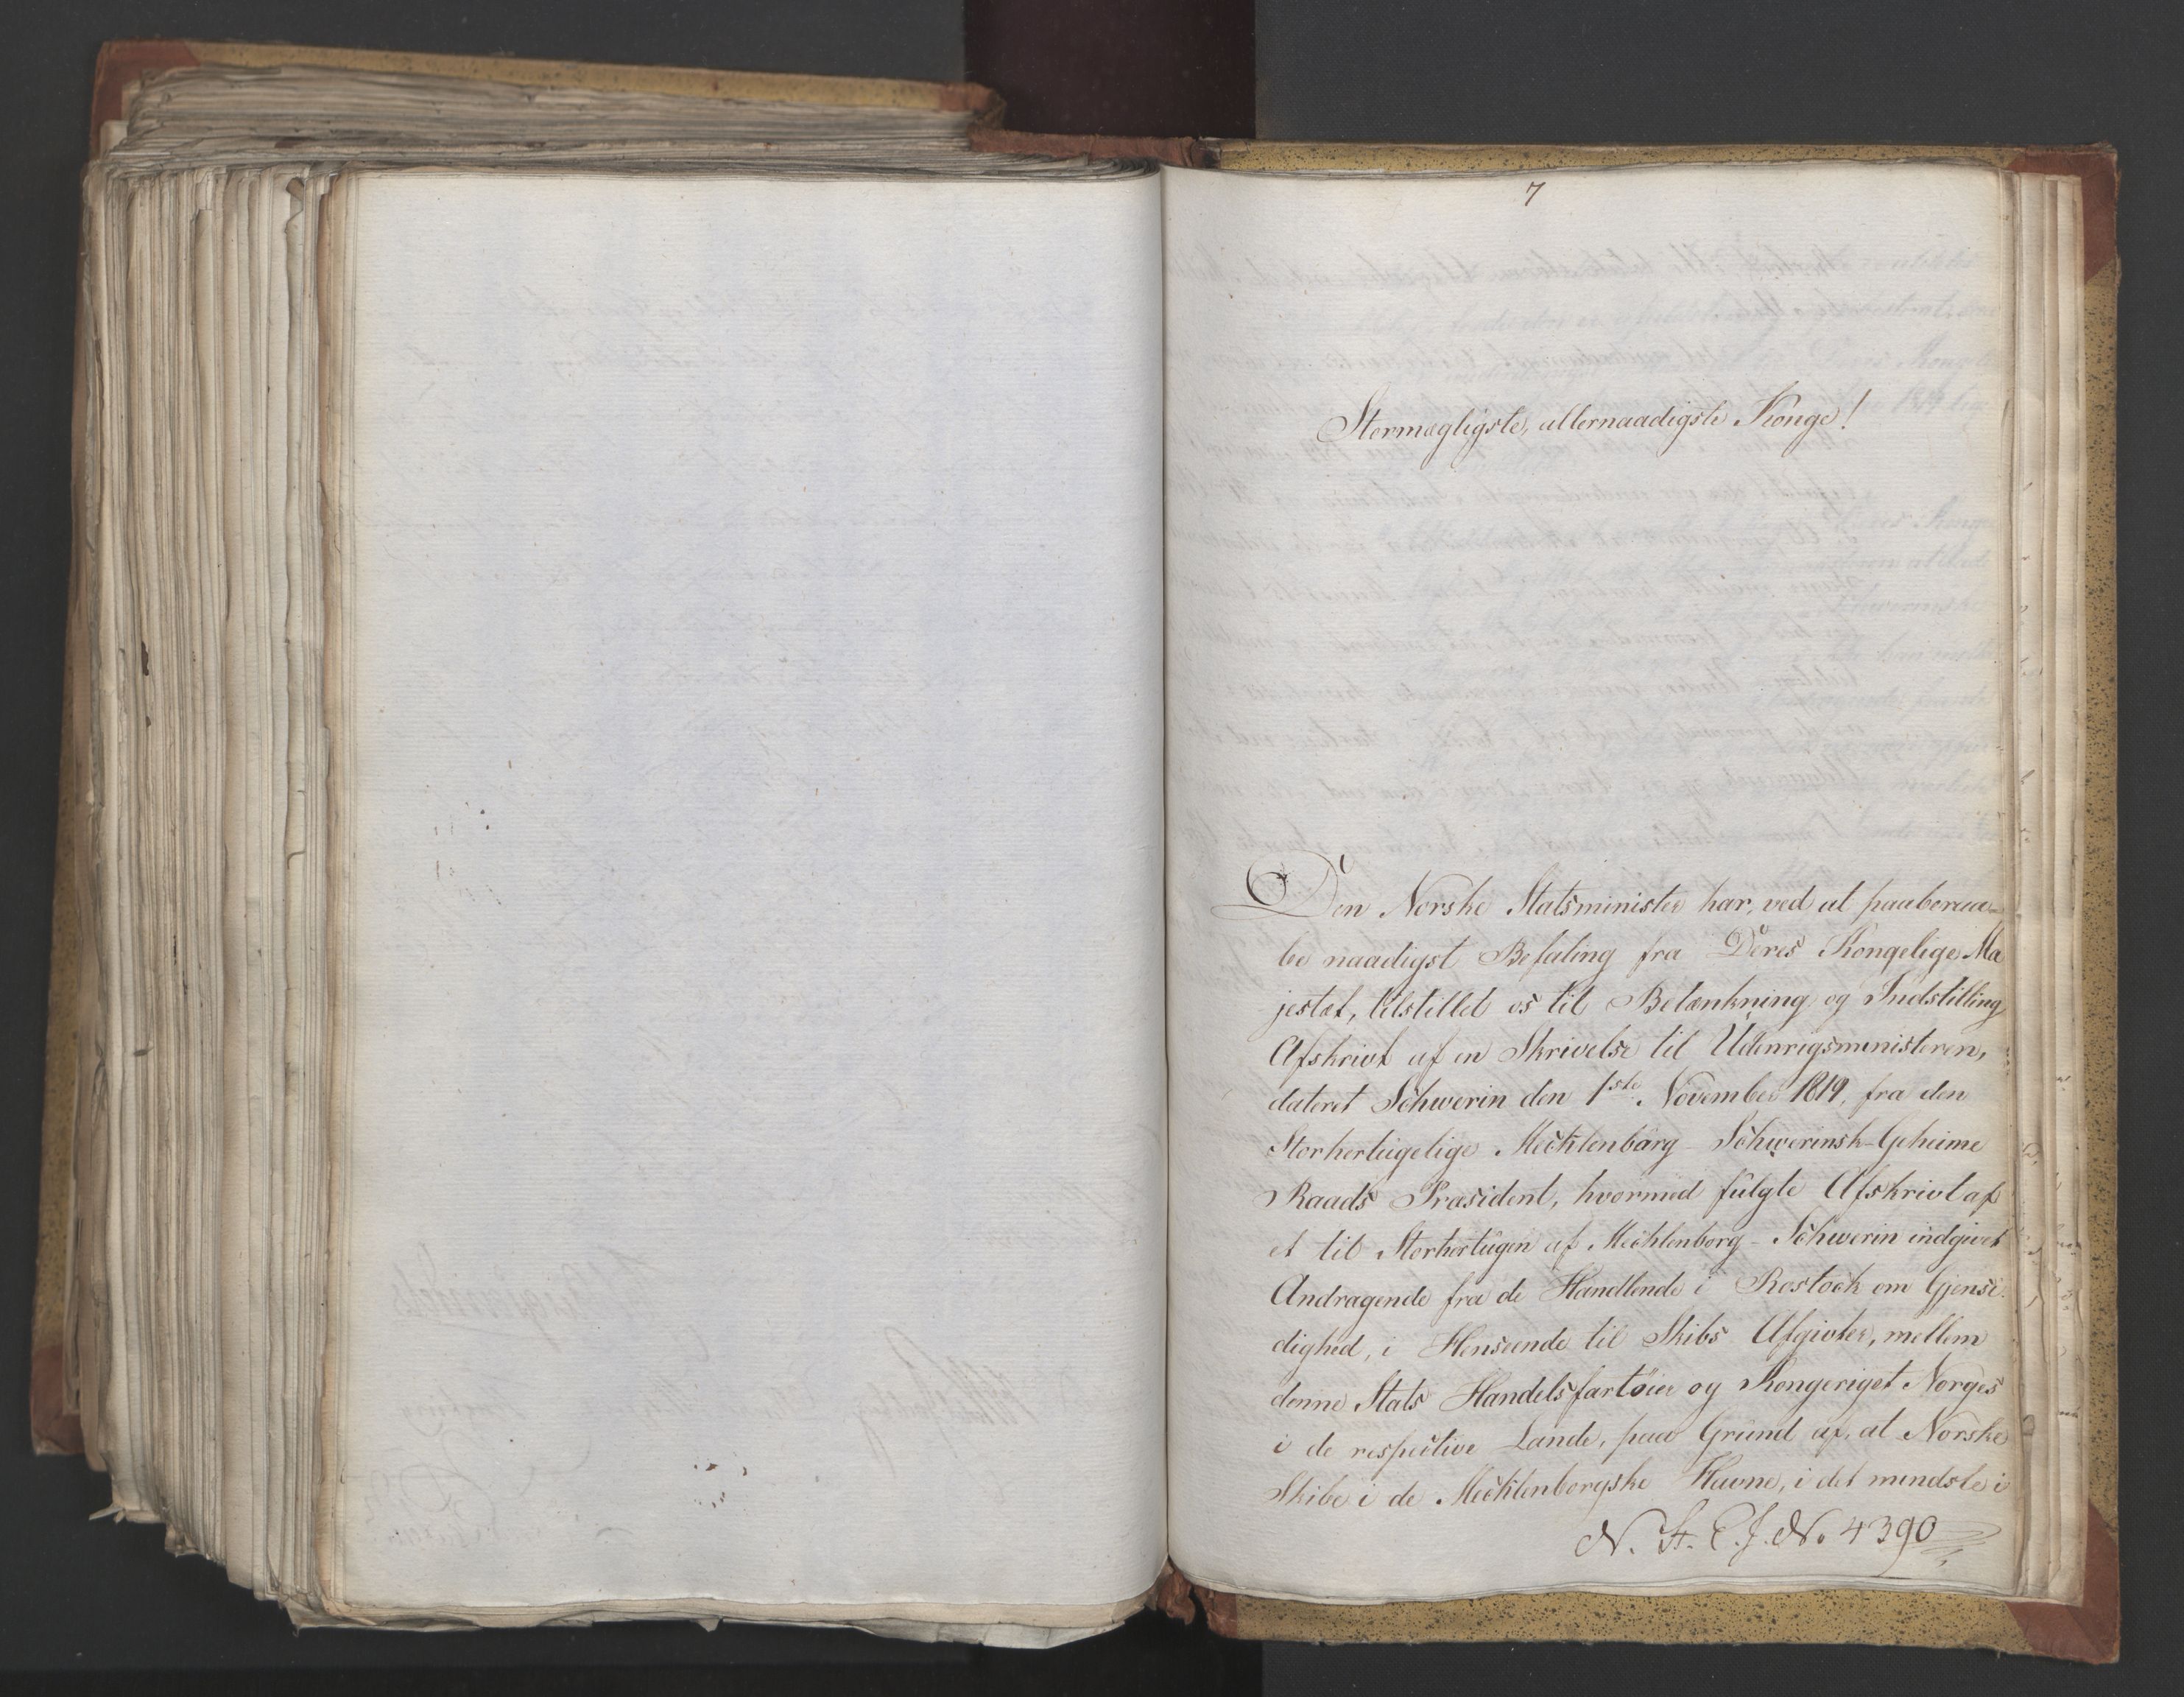 7
Stormægtigste, allernaadigste Konge!
Den Norske Statsminister har, ved at paaberaa-
be naadigst Befaling fra Deres Kongelige Ma
jestæt, tilstillet os til Betænkning og Indstilling
Afskrivt af en Skrivelse til Udenrigsministeren,
dateret Schwerin den 1ste November 1819, fra den
Storhertugelige Mecklenburg-Schwerinsk-Geheime
Raads Præsident, hvormed fulgte Afskrivt af
et til Storhertugen af Mecklenborg-Schwerin indgivet
Andragende fra de Handlende i Rostock om Gjensi-
dighed, i Henseende til Skibs Afgivter, mellem
denne Stats Handelsfartøier og Kongeriget Norges
i de respective Lande, paa Grund af, at Norske
Skibe i de Mecklenborgske Havne, i det mindste i
N. St. E. J. No 4390